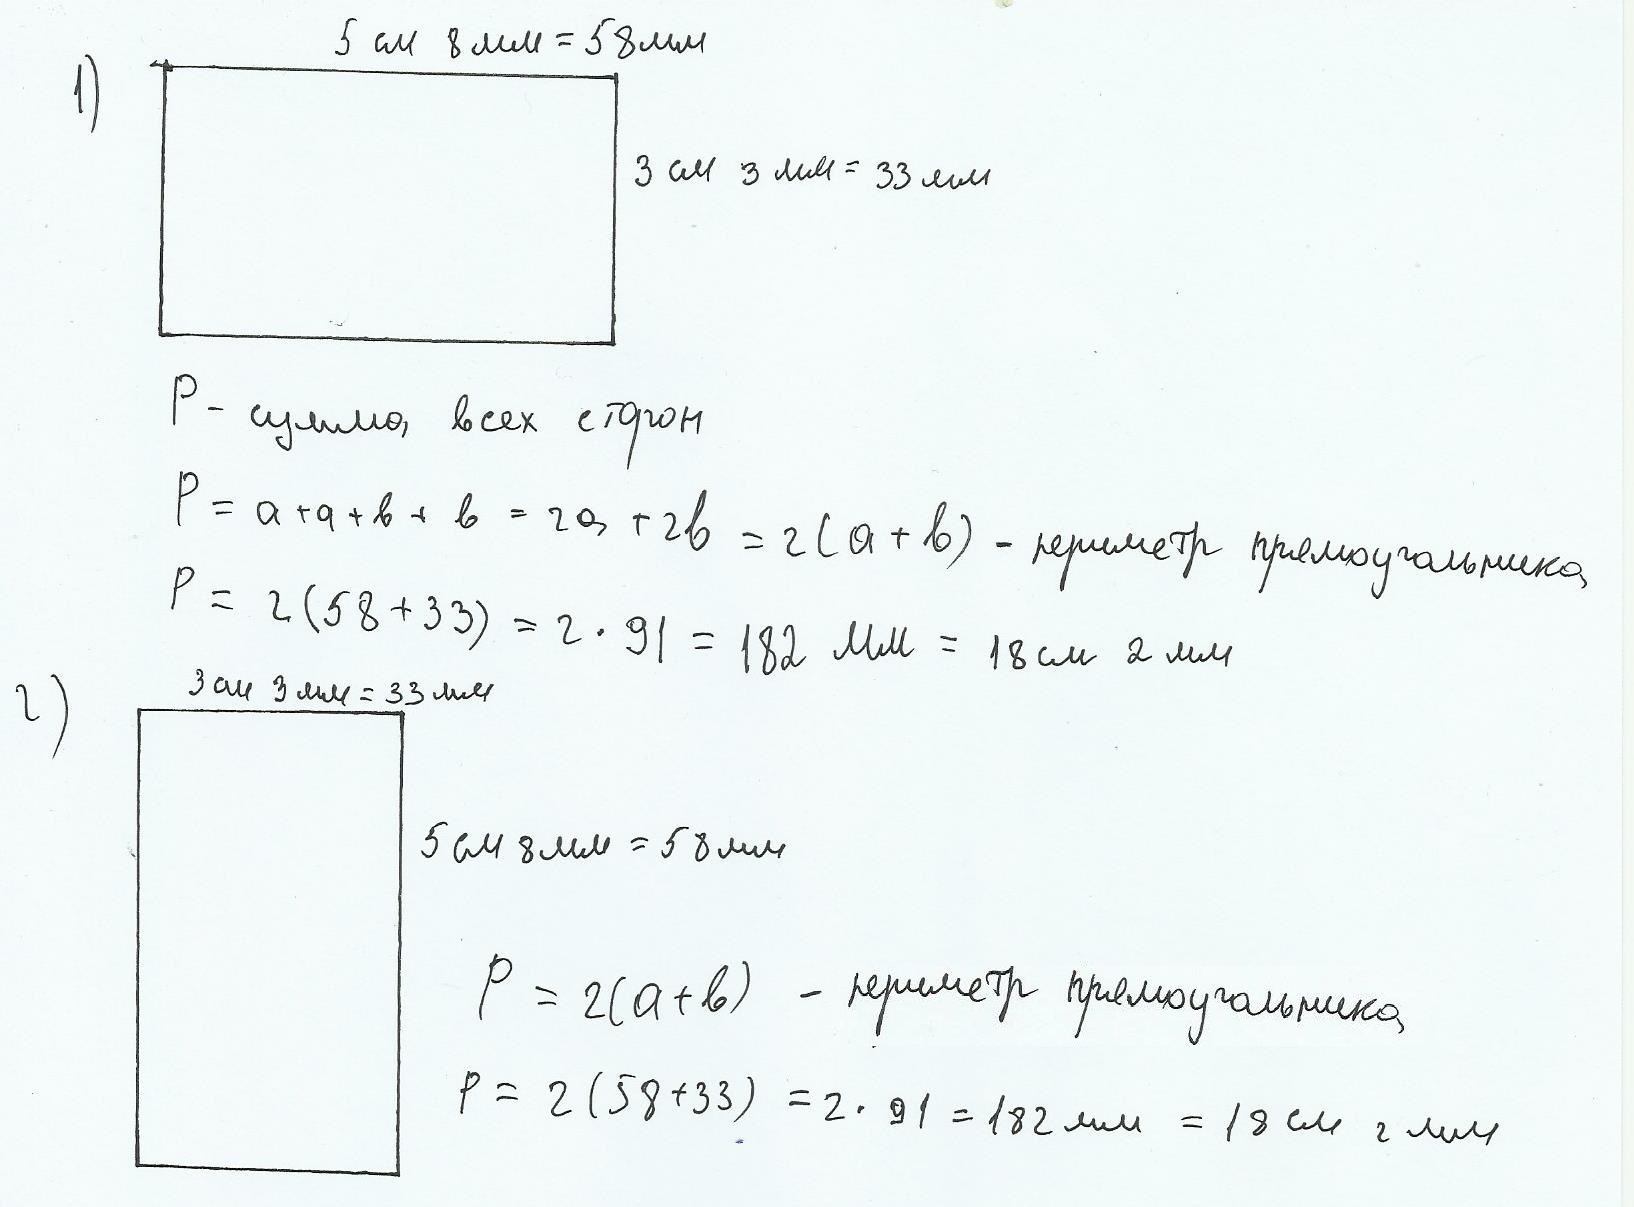 1)
5 см 8 мм = 58 мм
3 см 3 мм = 33 мм
P - сумма всех сторон
P = a + a + b + b = 2a + 2b = 2(a + b) - периметр прямоугольника
P = 2(58 + 33) = 2 · 91 = 182 мм = 18 см 2 мм
2)
3 см 3 мм = 33 мм
5 см 8 мм = 58 мм
P = 2(a + b) - периметр прямоугольника
P = 2(58 + 33) = 2 · 91 = 182 мм = 18 см 2 мм